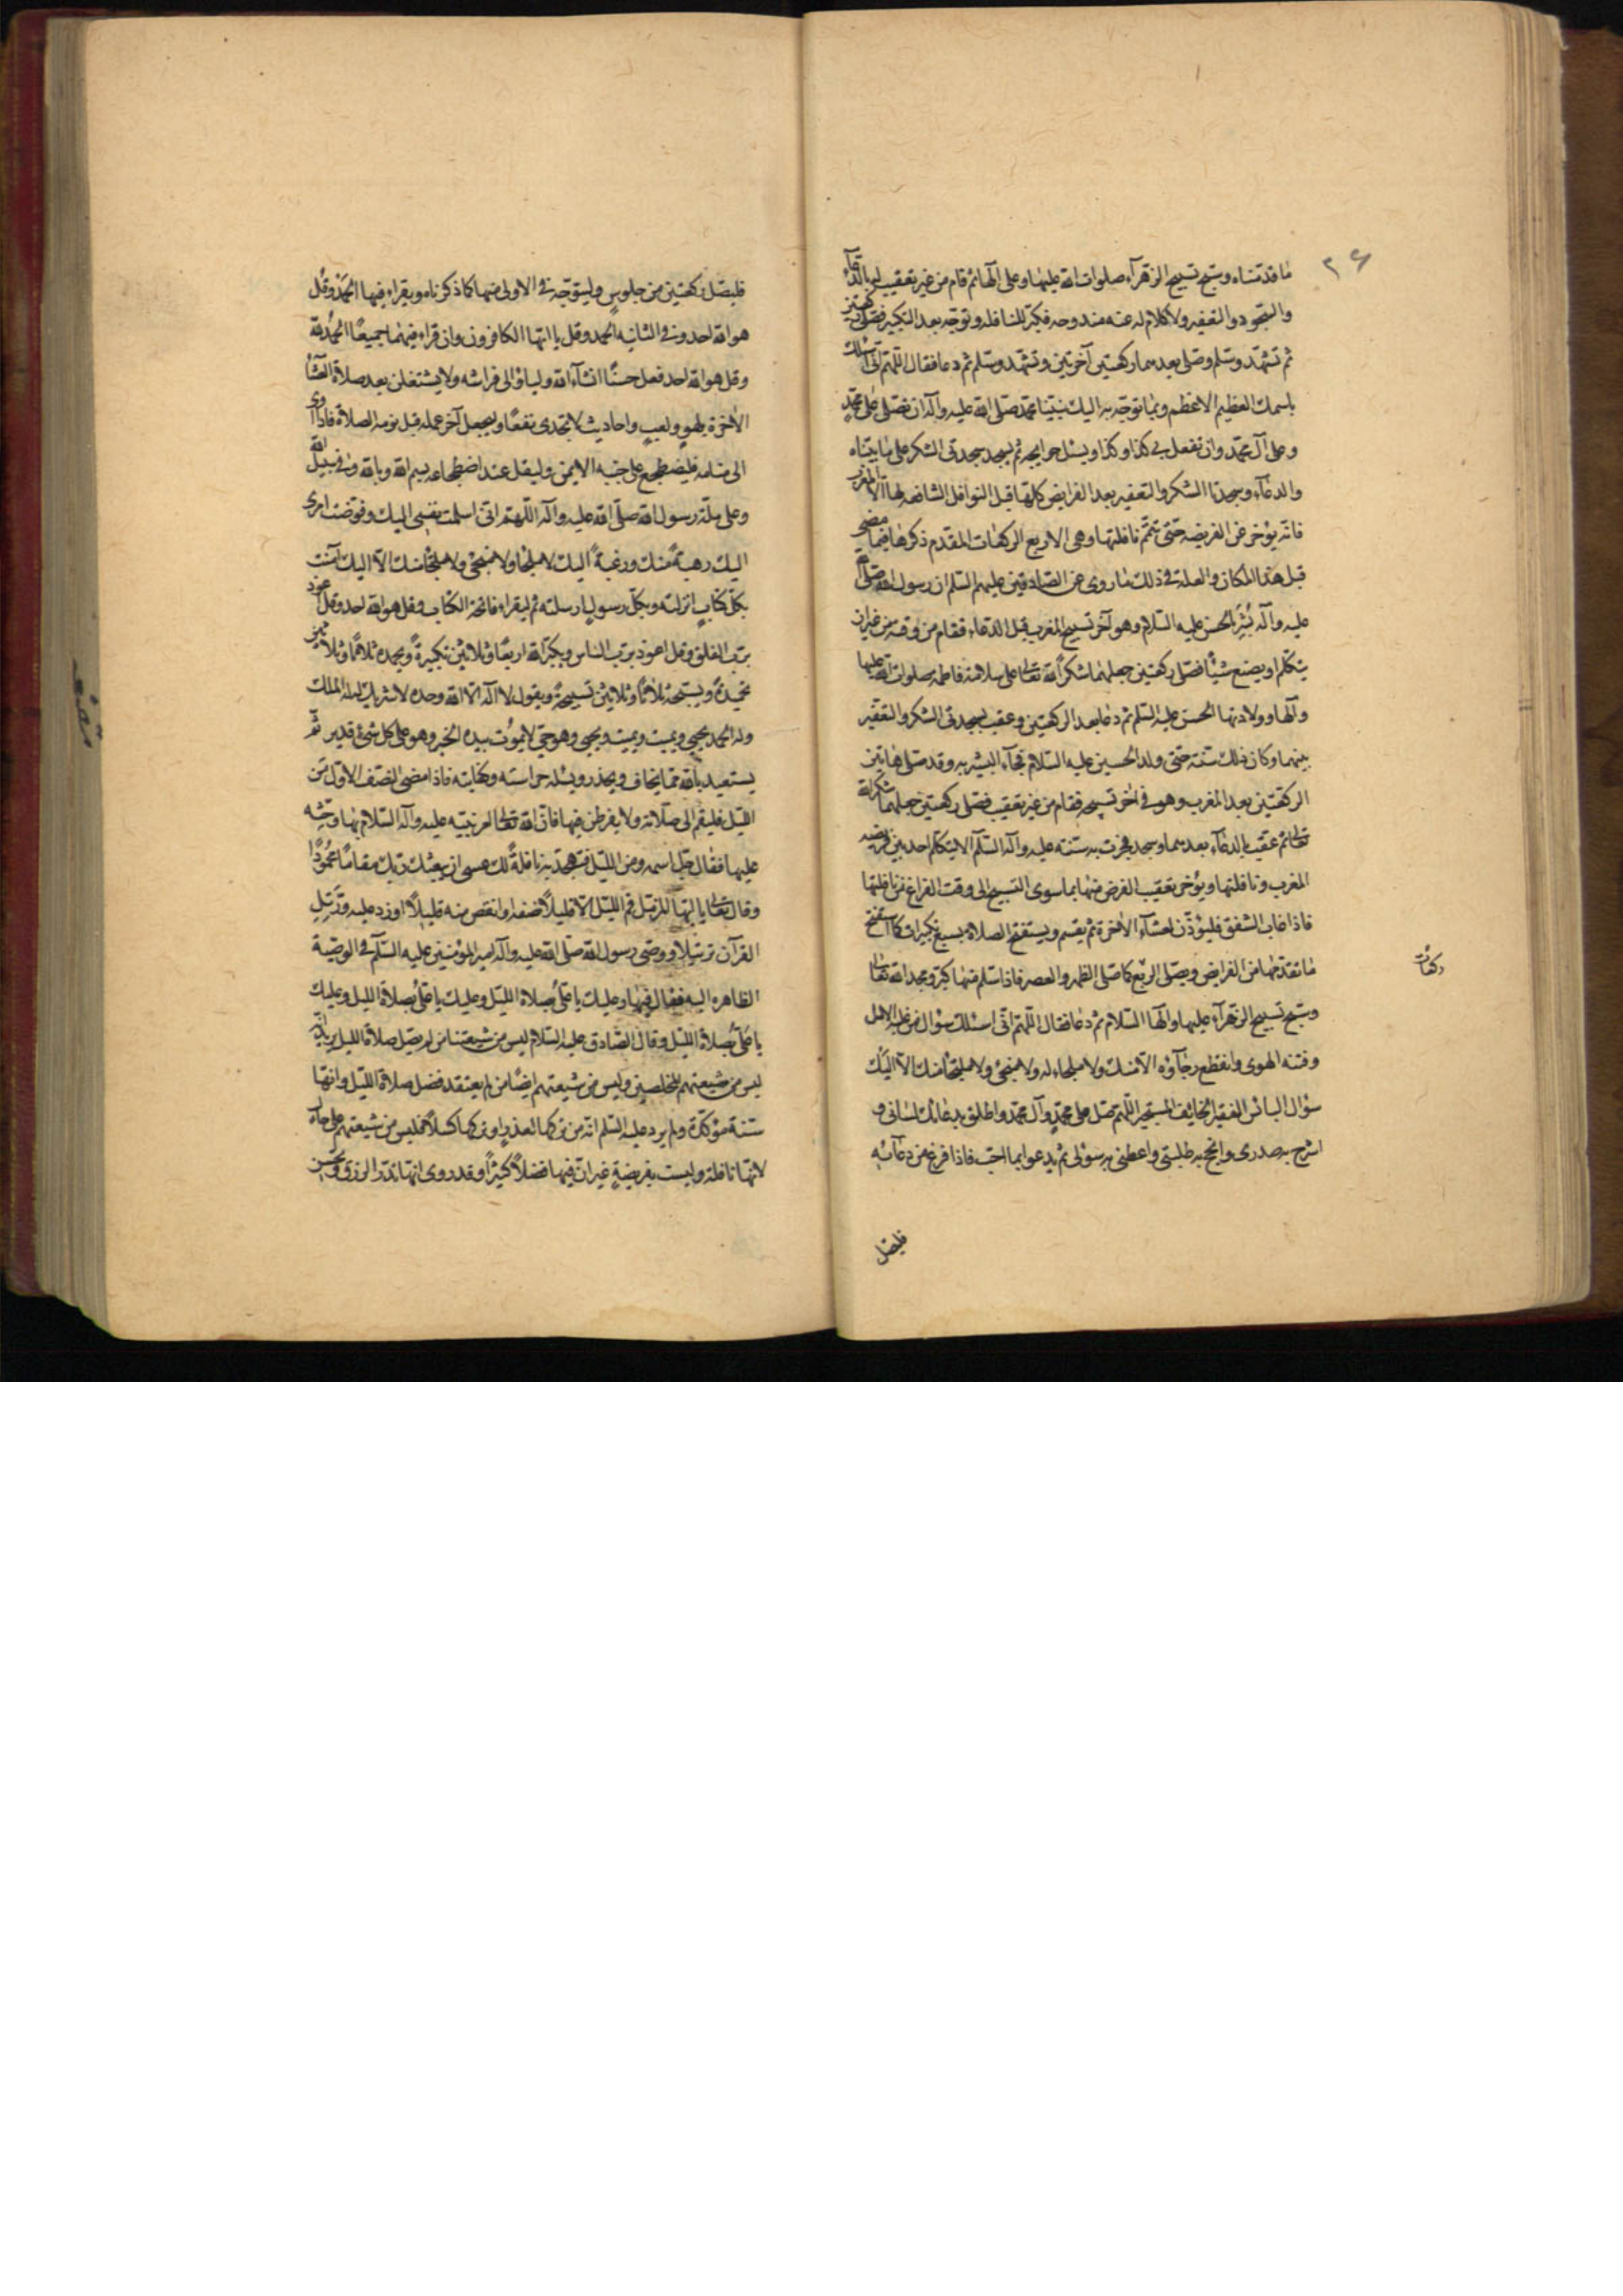 ٢٦
ما قدمناه وسبح تسبيح الزهرآء صلوات الله عليها وعلى آلها ثم قام من غير تعقيب بالدعآء
والسجود والتعفير ولا كلام له عنه مندوحه فكبر للنافله وتوجه بعد التكبير فصلى ركعتين
ثم تشهد وسلم وصلى بعدهما ركعتين آخرتين وتشهد وسلم ثم دعا فقال اللهم انى اسئلك
باسمك العظيم الاعظم وبما توجه به اليك نبينا محمد صلى الله عليه وآله ان تصلى على محمد
وعلى آل محمد وان تفعل بى كذا وكذا ويسئل حوايجه ثم يسجد سجدتى الشكر على ما بيناه
والدعآء وسجدتا الشكر والتعفير بعد الفرايض كلها قبل النوافل الشافعه لها الا المغرب
فانه يؤخر عن الفريضه حتى تتم نافلتها وهى الاربع الركعات المقدم ذكرها فيما مضى
قبل هذا المكان والعلة فى ذلك ما روى عن الصادقين عليهم السلم ان رسول الله صلى الله
عليه وآله بُشّر بالحسن عليه السلام وهو آخر تسبيح المغرب قبل الدعاء فقام من وقته من غير ان
يتكلم او يصنع شيئًا فصلى ركعتين جعلهما شكراً لله تعالى على سلامة فاطمه صلوات الله عليها
وآلها وولادتها الحسن عليه السلم ثم دعا بعد الركعتين وعقب بسجدتى الشكر والتعفير
بينهما وكان ذلك سنة حتى ولد الحسين عليه السلام فجآء البشير به وقد صلى هاتين
الركعتين بعد المغرب وهو فى آخر تسبيحه فقام من غير تعقيب فصلى ركعتين جعلهما شكراً لله
تعالى ثم عقب بالدعآء بعدهما وسجد فجرت به سنته عليه وآله السلم الا يتكلم احد بين فريضه
المغرب ونافلتها ويؤخر تعقيب الفرض منها بما سوى التسبيح الى وقت الفراغ من نافلتها
فاذا غاب الشفق فليؤذن لعشآء الاخرة ثم يقيم ويستفتح الصلاة بسبع تكبيرات كما استفتح
ما تقدمها من الفرايض ويصلى اربع كما صلى الظهر والعصر فاذا سلم منها كبر ومجد الله تعالى
ركعات
وسبح تسبيح الزهرآء عليها وآلها السلام ثم دعا فقال اللهم انى اسئلك سؤال من غلبه الامل
وفتنه الهوى وانقطع رجآؤه الا منك ولا ملجاء له ولا منجى ولا ملتجا منك الا اليك
سؤال البائس الفقير الخايف المستجير اللهم صل على محمد وآل محمد واطلق بدعائك لسانى و
اشرح به صدرى وانجح به طلبتى واعطنى به سؤلى ثم يدعو بما احب فاذا فرغ من دعآئه
فليصل
فليصل ركعتين من جلوس وليتوجه فى الاولى منهما كما ذكرناه ويقراء فيها الحمد وقل
هو الله احد وفى الثانيه الحمد وقل يا ايها الكافرون وان قراء فيهما جميعًا الحمد لله
وقل هو الله احد فعل حسنًا انشآء الله وليأو الى فراشه ولا يشتغلن بعد صلاة العشآء
الاخرة بلهو ولعب واحاديث لا تجدى نفعًا وليجعل آخر عمله قبل نومه الصلاة فاذا اوى
الى منامه فليضطجع على جنبه الايمن وليقل عند اضطجاعه بسم الله وبالله وفى سبيل الله
وعلى ملة رسول الله صلى الله عليه وآله اللهم انى اسلمت نفسى اليك وفوضت امرى
اليك رهبةً منك ورغبةً اليك لا ملجا ولا منجى ولا ملتجا منك الا اليك آمنت
بكل كتاب انزلته وبكل رسول ارسلته ثم ليقراء فاتحة الكتاب وقل هو الله احد وقل اعوذ
برب الفلق وقل اعوذ برب الناس ويكبر الله اربعًا وثلاثين تكبيرةً ويحمده ثلاثًا وثلاثين
تحميدةً ويسبحه ثلاثًا وثلاثين تسبيحةً ويقول لا اله الا الله وحده لا شريك له له الملك
وله الحمد يحيى ويميت ويميت ويحيى وهو حى لا يموت بيده الخير وهو على كل شئ قدير ثم
يستعيذ بالله مما يخاف ويحذر ويسئله حراسته وكفايته فاذا مضى النصف الاول من
الليل فليقم الى صلاته ولا يفرطن فيها فان الله تعالى امر نبيه عليه وآله السلام بها وحثه
عليها فقال جل اسمه ومن الليل فتهجد به نافلةً لك عسى ان يبعثك ربك مقامًا محمودًا
وقال تعالى يا ايها المزمل قم الليل الا قليلاً نصفه او انقص منه قليلاً او زد عليه ورتل
القرآن ترتيلا ووصى رسول الله صلى الله عليه وآله امير المؤمنين عليه السلم فى الوصية
الظاهره اليه فقال فيها وعليك يا على بصلاة الليل وعليك يا على بصلاة الليل وعليك
يا على بصلاة الليل وقال الصادق عليه السلام ليس من شيعتنا من لم يصل صلاة الليل يريد انه
ليس من شيعتهم المخلصين وليس من شيعتهم ايضًا من لم يعتقد فضل صلاة الليل وانها
سنة مؤكدة ولم يرد عليه السلم انه من تركها لعذر او تركها كسلاً فليس من شيعتهم على حال
لانها نافلة وليست بفريضة غير ان فيها فضلاً كثيرًا وقد روى انها تدر الرزق وتحسن